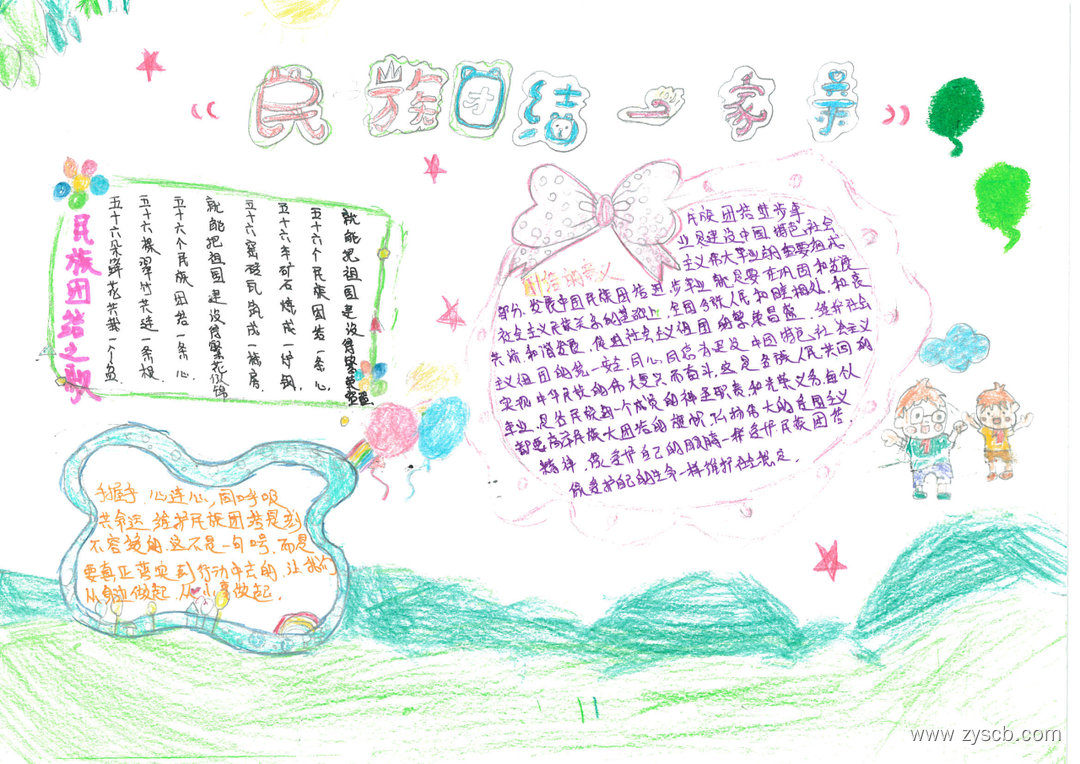 《民族团结一家亲》
民族团结之歌
五十六朵鲜花共栽一个盆，
五十六根翠竹共连一条根，
五十六个民族团结一条心，
就能把祖国建设得繁花似锦
五十六窑砖瓦筑成一幢房，
五十六车矿石烧成一炉钢，
五十六个民族团结一条心，
就能把祖国建设得繁荣
团结的意义
民族团结进步事
业是建设中国特色社会
主义伟大事业的重要组成
部分，发展中国民族团结进步事业就是要在巩固和发展
社会主义民族关系的基础上，全国各族人民和睦相处、和衷
共济和谐发展，促进社会主义祖国的繁荣昌盛，维护社会
主义祖国的统一安全，同心同德为建设中国特色社会主义
实现中华民族的伟大复兴而奋斗，这是各族人民共同的
事业，是各民族每一个成员的神圣职责和光荣义务，每位
都要高举民族大团结的旗帜，弘扬伟大的爱国主义
精神，像爱护自己的眼睛一样爱护民族团结，
像爱护自己的生命一样维护社会稳定。
手握手，心连心，同呼吸
共命运，维护民族团结是刻
不容缓的，这不是一句口号，而是
要真正落实到行动中去的，让我们
从身边做起，从小事做起。
www.zyscb.com